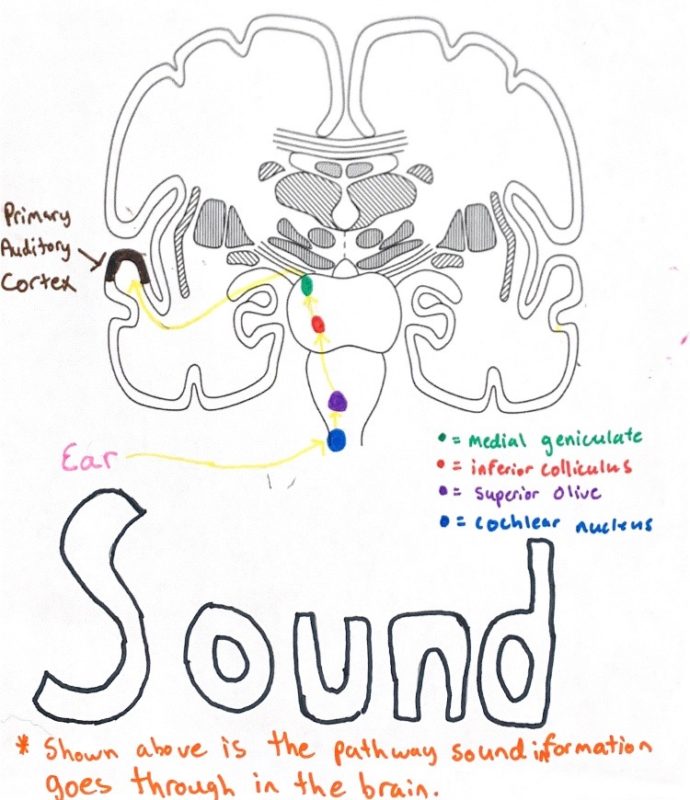 Primary
Auditory
Cortex
Ear
= medial geniculate
= inferior colliculus
= Superior Olive
= cochlear nucleus
Sound
* Shown above is the pathway sound information
goes through in the brain.